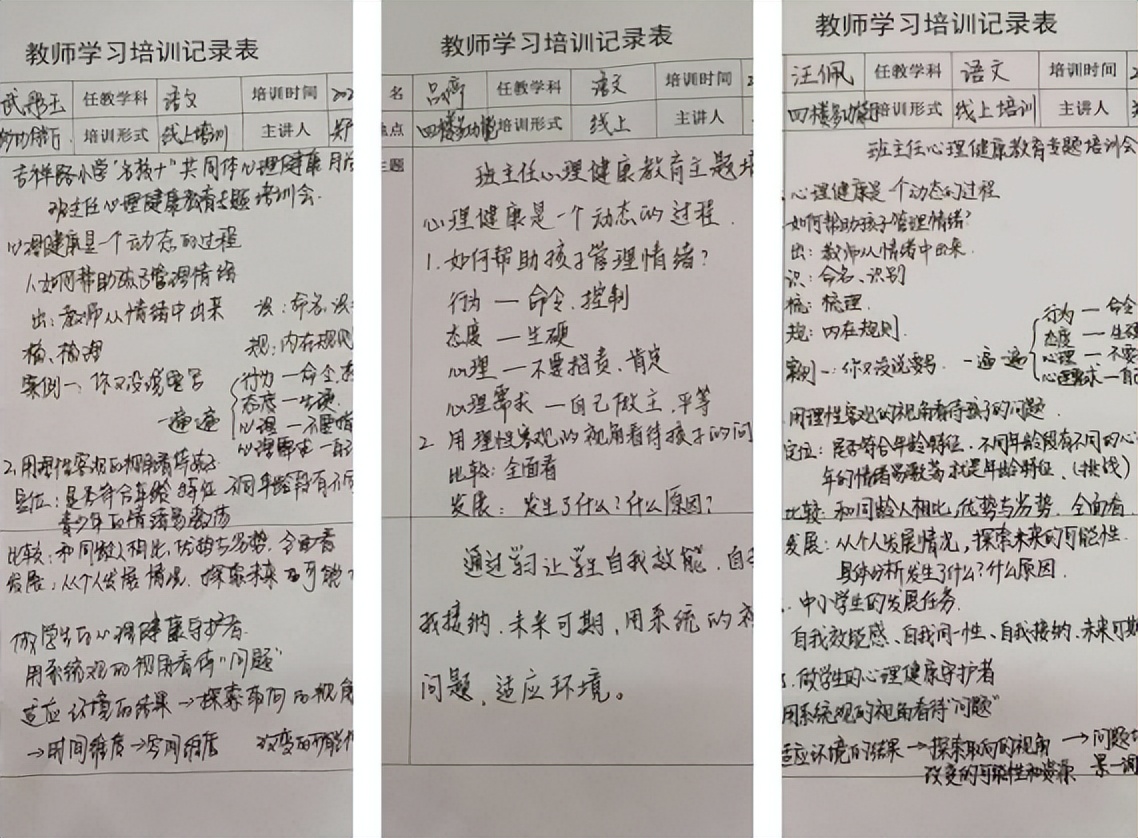 教师学习培训记录表
任教学科 语文 培训时间
培训形式 线上培训 主讲人
吉祥路小学"名教+"共同体心理健康月活
班主任心理健康教育专题培训会.
心理健康是一个动态的过程
1.如何帮助孩子管理情绪
出:教师从情绪中出来 识:命名、识
梳、梳理 规:内在规则
案例一:你又没说要写 行为—命令,
态度—生硬
一遍遍 心理—不要指
心理需求—自己
2.用理性客观的视角看待孩子
定位:是否符合年龄特征 不同年龄段有不同
青少年的情绪易激荡
比较:和同龄人相比,优势与劣势,全面看
发展:从个人发展情况,探索未来的可能
做学生的心理健康守护者.
用系统观的视角看待"问题"
适应环境的结果→探索取向的视角
→时间维度→空间维度 改变的可能性
教师学习培训记录表
名 吕 任教学科 语文 培训时间
地点 四楼多功能 培训形式 线上 主讲人
主题 班主任心理健康教育主题培
心理健康是一个动态的过程.
1.如何帮助孩子管理情绪?
行为—命令.控制
态度—生硬
心理—不要指责、肯定
心理需求—自己做主.平等
2.用理性客观的视角看待孩子的问
比较:全面看
发展:发生了什么?什么原因?
通过学习让学生自我效能.自
我接纳.未来可期,用系统的视
问题,适应环境。
教师学习培训记录表
汪佩 任教学科 语文 培训时间
四楼多功能厅 培训形式 线上培训 主讲人
班主任心理健康教育专题培训会
心理健康是一个动态的过程
如何帮助孩子管理情绪?
出:教师从情绪中出来.
识:命名、识别
梳:梳理.
规:内在规则. 行为—命令
态度—生硬
案例一:你又没说要写. 一遍遍 心理—不要
心理需求—自己
用理性客观的视角看待孩子的问题.
定位:是否符合年龄特征.不同年龄段有不同的心
年的情绪易激荡就是年龄特征.(挑战)
比较:和同龄人相比,优势与劣势.全面看.
发展:从个人发展情况,探索未来的可能性.
具体分析发生了什么?什么原因.
中小学生的发展任务.
自我效能感、自我同一性、自我接纳、未来可期
做学生的心理健康守护者
用系统观的视角看待"问题"
适应环境的结果→探索取向的视角→问题
改变的可能性和资源